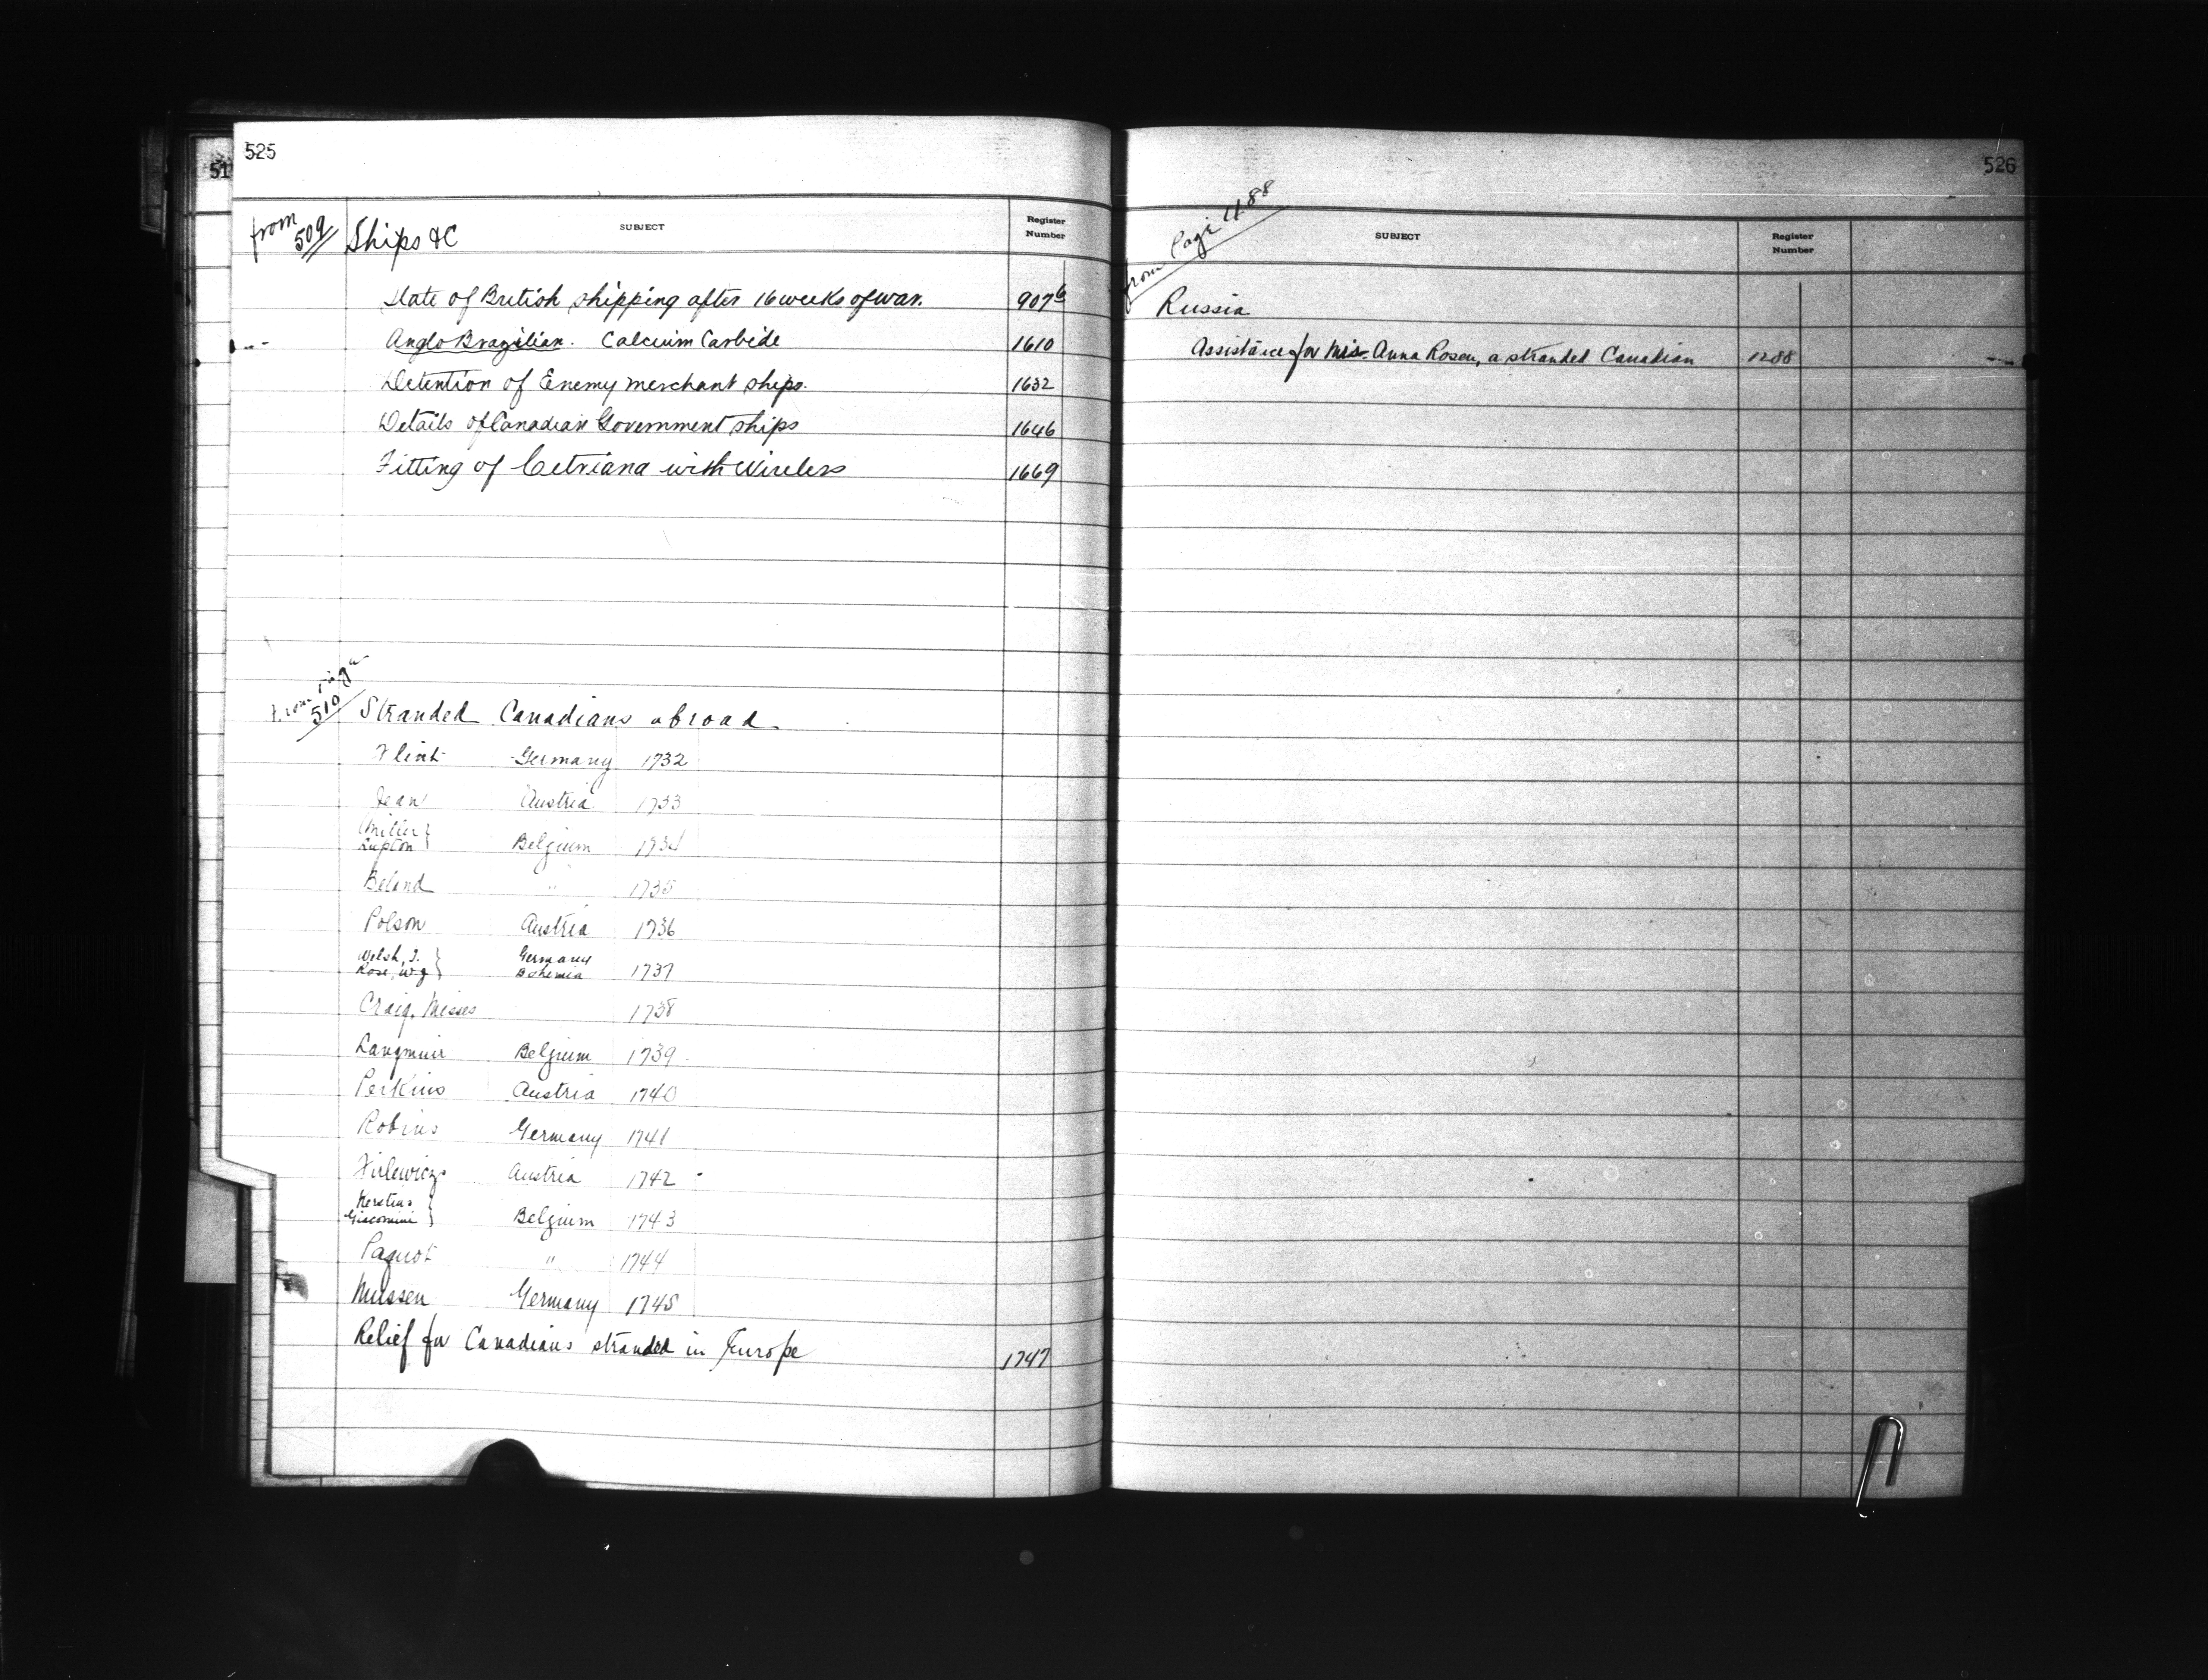 525
51
from 509
Ships &C
SUBJECT
Register Number
State of British shipping after 16 weeks of war. 907 6
Anglo Brazilian. Calcium Carbide 1610
Detention of Enemy merchant ships. 1632
Details of Canadian Government ships 1646
Fitting of Cetriana with Wireless 1669
from page 510
Stranded Canadians abroad
Flint Germany 1732
Jean Austria 1733
Miller }
Lupton } Belgium 1734
Beland " 1735
Polson Austria 1736
Welsh, J. } Germany
Rose, W.J. } Bohemia 1737
Craig, Misses 1738
Langmuir Belgium 1739
Perkins Austria 1740
Robins Germany 1741
Austria 1742
Kerstens }
Giacomini } Belgium 1743
Paquot " 1744
Mussen Germany 1745
Relief for Canadians stranded in Europe 1747
526
from Page 488
SUBJECT
Register Number
Russia
Assistance for Mrs. Anna Rosen, a stranded Canadian 1288